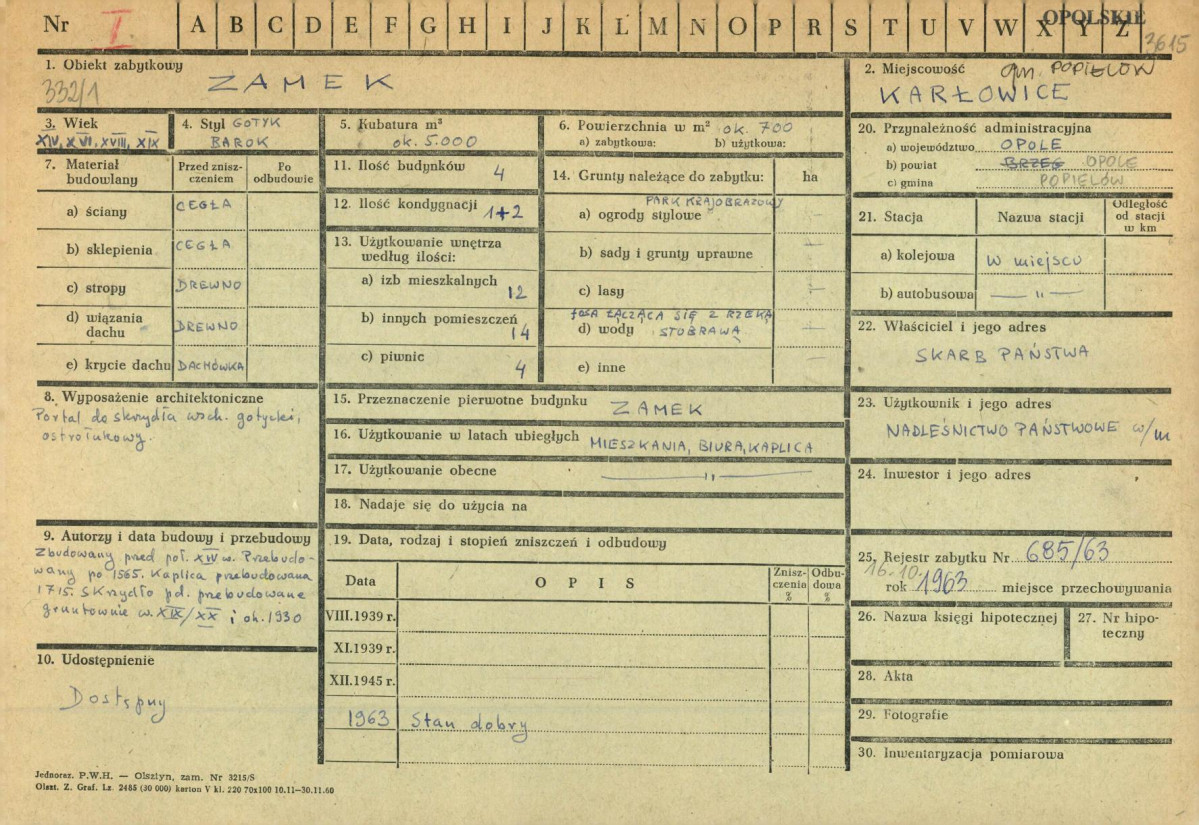 Nr I A B C D E F G H I J K L M N O P R S T U V W X Y Z OPOLSKIE
3615
1. Obiekt zabytkowy
332/1 ZAMEK
2. Miejscowość gm. POPIELÓW
KARŁOWICE
3. Wiek
XIV, XVI, XVIII, XIX
4. Styl GOTYK
BAROK
5. Kubatura m³
ok. 5.000
6. Powierzchnia w m² ok. 700
a) zabytkowa: b) użytkowa:
7. Materiał
budowlany
Przed znisz-
czeniem
Po
odbudowie
a) ściany CEGŁA
b) sklepienia CEGŁA
c) stropy DREWNO
d) wiązania
dachu DREWNO
e) krycie dachu DACHÓWKA
8. Wyposażenie architektoniczne
Portal do skrzydła wsch. gotycki,
ostrołukowy.
9. Autorzy i data budowy i przebudowy
Zbudowany przed poł. XIV w. Przebudo-
wany po 1565. Kaplica przebudowana
1715. Skrzydło pd. przebudowane
gruntownie w. XIX/XX i ok. 1930
10. Udostępnienie
Dostępny
11. Ilość budynków 4
12. Ilość kondygnacji 1+2
13. Użytkowanie wnętrza
według ilości:
a) izb mieszkalnych 12
b) innych pomieszczeń 14
c) piwnic 4
14. Grunty należące do zabytku: ha
PARK KRAJOBRAZOWY
a) ogrody stylowe
b) sady i grunty uprawne
c) lasy
fosa ŁĄCZĄCA SIĘ Z RZEKĄ
d) wody STOBRAWĄ
e) inne
15. Przeznaczenie pierwotne budynku ZAMEK
16. Użytkowanie w latach ubiegłych MIESZKANIA, BIURA, KAPLICA
17. Użytkowanie obecne — " —
18. Nadaje się do użycia na
19. Data, rodzaj i stopień zniszczeń i odbudowy
Data OPIS Znisz-
czenia
% Odbu-
dowa
%
VIII.1939 r.
XI.1939 r.
XII.1945 r.
1963 Stan dobry
20. Przynależność administracyjna
a) województwo OPOLE
b) powiat BRZEG OPOLE
c) gmina POPIELÓW
21. Stacja Nazwa stacji Odległość
od stacji
w km
a) kolejowa w miejscu
b) autobusowa — " —
22. Właściciel i jego adres
SKARB PAŃSTWA
23. Użytkownik i jego adres
NADLEŚNICTWO PAŃSTWOWE w/m
24. Inwestor i jego adres
25. Rejestr zabytku Nr 685/63
16.10.
rok 1963 miejsce przechowywania
26. Nazwa księgi hipotecznej
27. Nr hipo-
teczny
28. Akta
29. Fotografie
30. Inwentaryzacja pomiarowa
Jednocz. P.W.H. — Olsztyn, zam. Nr 3215/S
Olszt. Z. Graf. Lz. 2485 (30 000) karton V kl. 220 70x100 10.11—30.11.60